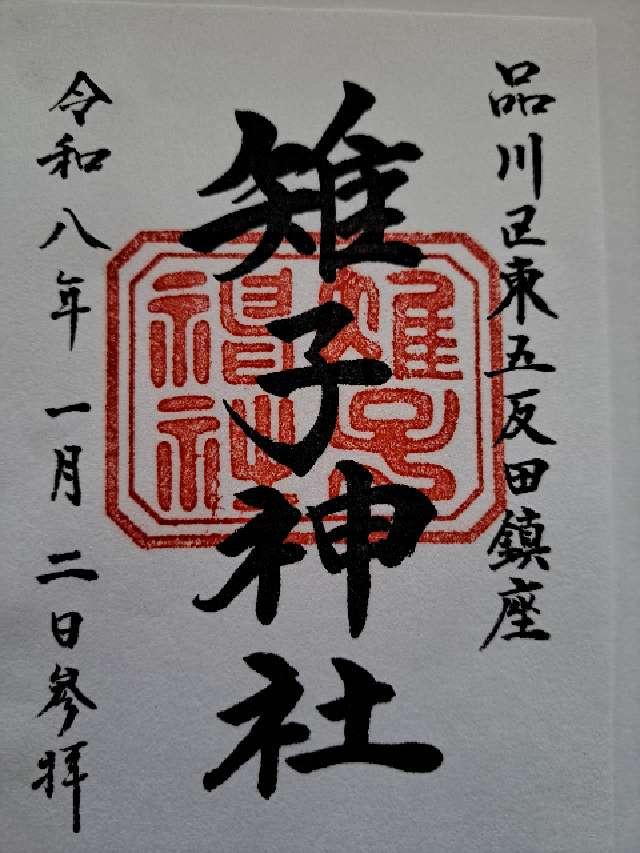 品川区東五反田鎮座
雉子神社
令和八年一月二日参拝
雉子神社